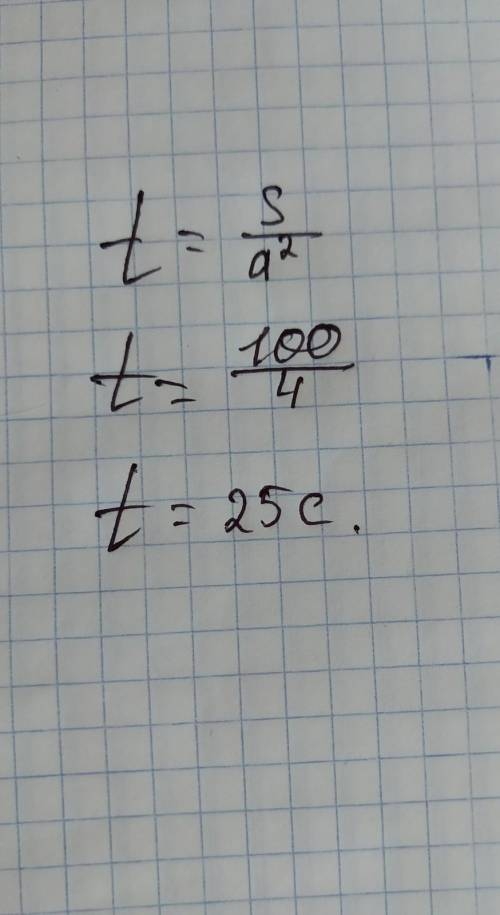 t = S/a²
t = 100/4
t = 25 с.